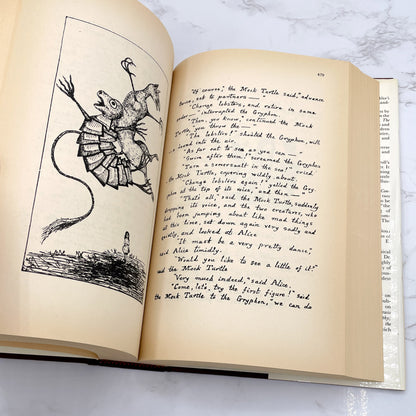 479
"Of course," the Mock Turtle said, "advance
twice, set to partners —"
"Change lobsters, and retire in same
order —" interrupted the Gryphon.
"Then, you know," continued the Mock
Turtle, "you throw the —"
"The lobsters!" shouted the Gryphon, with
a bound into the air.
"As far out to sea as you can —"
"Swim after them!" screamed the Gryphon
"Turn a somersault in the sea!" cried
the Mock Turtle, capering wildly about.
"Change lobsters again!" yelled the Gry-
phon at the top of its voice, "and then —"
"That's all," said the Mock Turtle, suddenly
dropping its voice, and the two creatures, who
had been jumping about like mad things
all this time, sat down again very sadly and
quietly, and looked at Alice.
"It must be a very pretty dance,"
said Alice timidly.
"Would you like to see a little of it?"
said the Mock Turtle
"Very much indeed," said Alice.
"Come, let's try the first figure!" said
the Mock Turtle to the Gryphon, "we can do